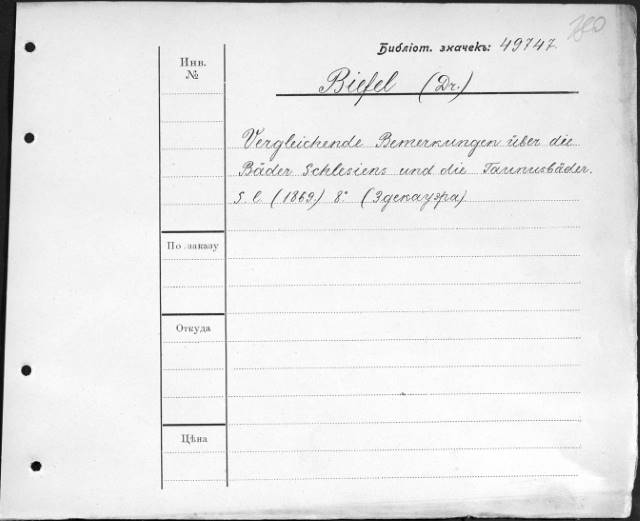 Библіот. значекъ: 49747.
Инв.
№
Biefel (Dr.)
Vergleichende Bemerkungen über die
Bäder Schlesiens und die Taunusbäder.
S. l. (1869.) 8° (Эдекауэра)
По заказу
Откуда
Цѣна